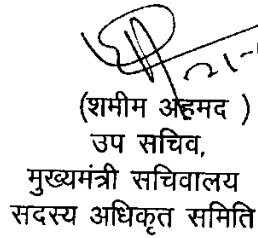 21-
(शमीम अहमद )
उप सचिव,
मुख्यमंत्री सचिवालय
सदस्य अधिकृत समिति